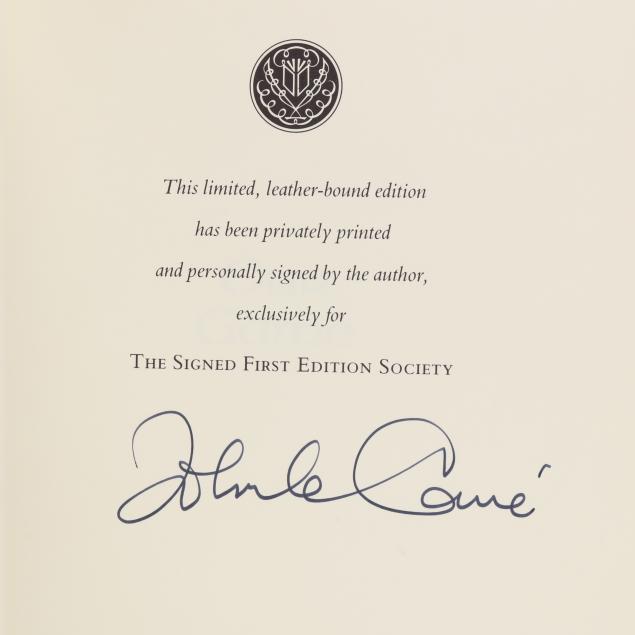 This limited, leather-bound edition
has been privately printed
and personally signed by the author,
exclusively for
THE SIGNED FIRST EDITION SOCIETY
John le Carré